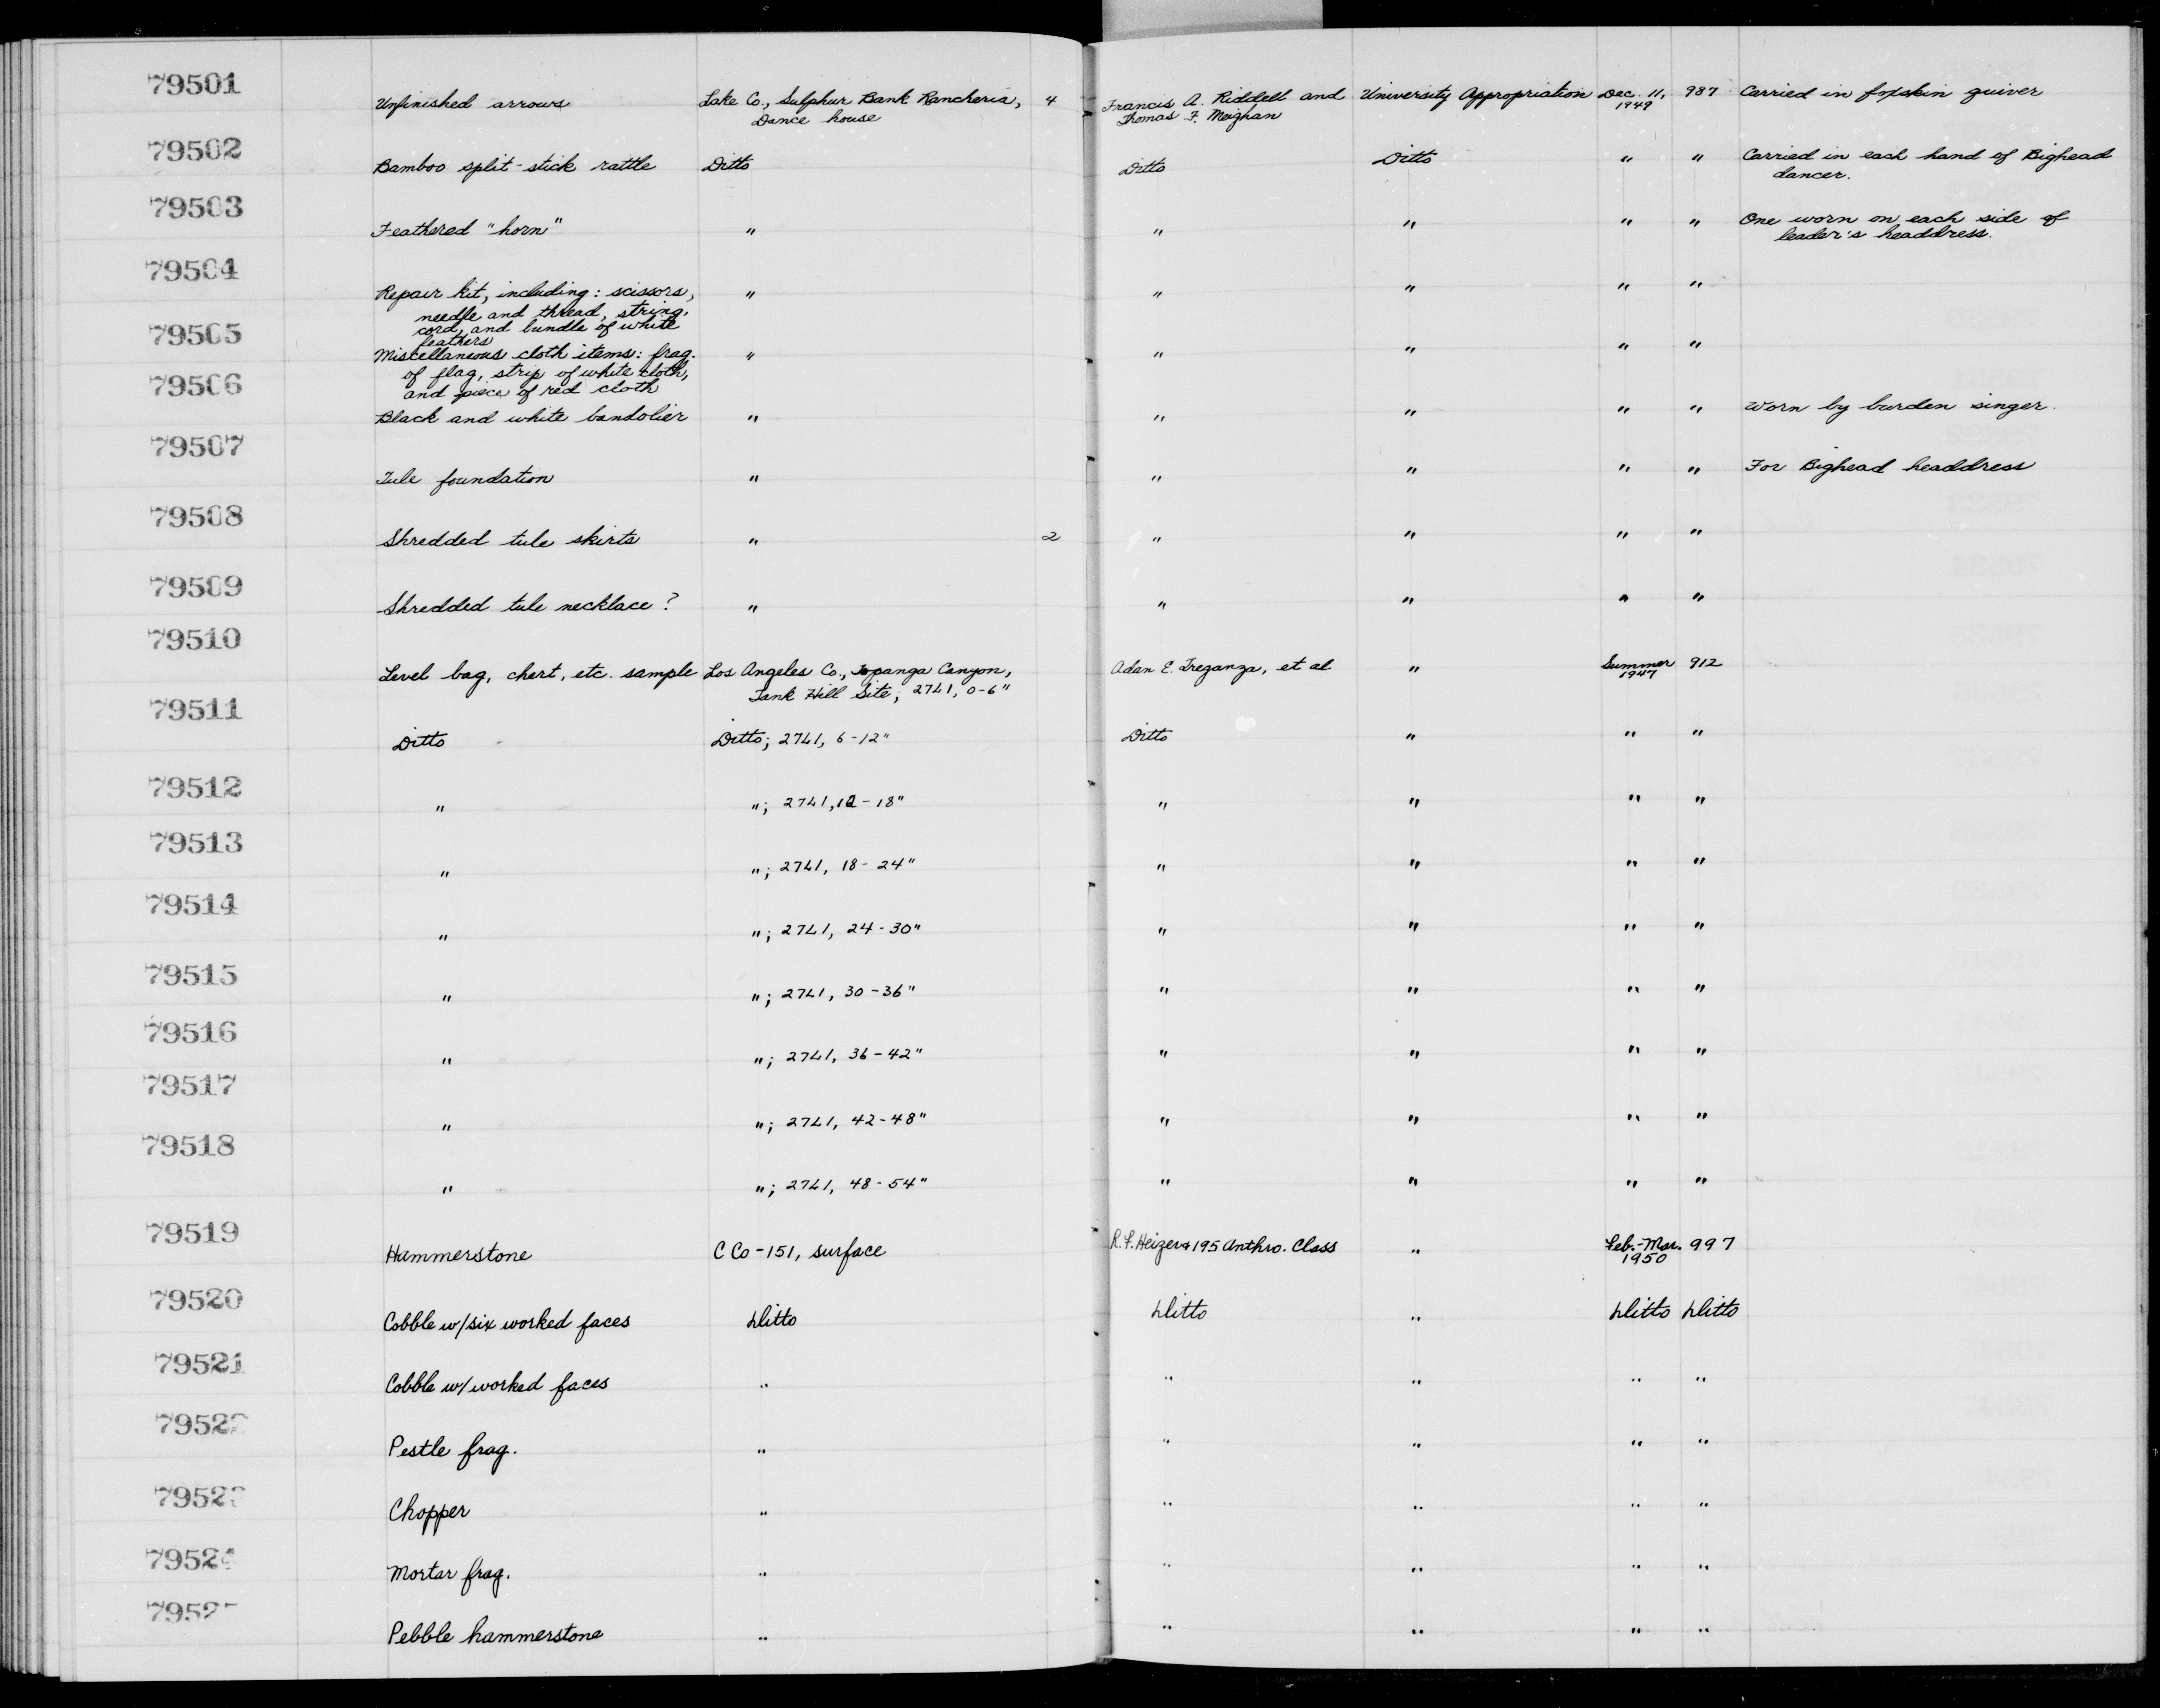 79501 Unfinished arrows Lake Co., Sulphur Bank Rancheria, 4 Francis A. Riddell and University Appropriation Dec. 11, 987 Carried in foxskin quiver
Dance house Thomas F. Meighan 1949
79502 Bamboo split-stick rattle Ditto Ditto Ditto " " Carried in each hand of Bighead
dancer.
79503 Feathered "horn" " " " " " One worn on each side of
leader's headdress.
79504 Repair kit, including: scissors, " " " " "
needle and thread, string,
cord, and bundle of white
feathers
79505 Miscellaneous cloth items: frag. " " " " "
of flag, strip of white cloth,
and piece of red cloth
79506 Black and white bandolier " " " " " Worn by burden singer.
79507 Tule foundation " " " " " For Bighead headdress
79508 Shredded tule skirts " 2 " " " "
79509 Shredded tule necklace? " " " " "
79510 Level bag, chert, etc. sample Los Angeles Co., Topanga Canyon, Adan E. Treganza, et al " Summer 912
Tank Hill Site; 27L1, 0-6" 1947
79511 Ditto Ditto; 27L1, 6-12" Ditto " " "
79512 " "; 27L1, 12-18" " " " "
79513 " "; 27L1, 18-24" " " " "
79514 " "; 27L1, 24-30" " " " "
79515 " "; 27L1, 30-36" " " " "
79516 " "; 27L1, 36-42" " " " "
79517 " "; 27L1, 42-48" " " " "
79518 " "; 27L1, 48-54" " " " "
79519 Hammerstone C Co-151, surface R.F. Heizer & 195 Anthro. Class " Feb.-Mar. 997
1950
79520 Cobble w/six worked faces Ditto Ditto " Ditto Ditto
79521 Cobble w/worked faces " " " " "
7952 Pestle frag. " " " " "
7952 Chopper " " " " "
79524 Mortar frag. " " " " "
7952 Pebble hammerstone " " " " "